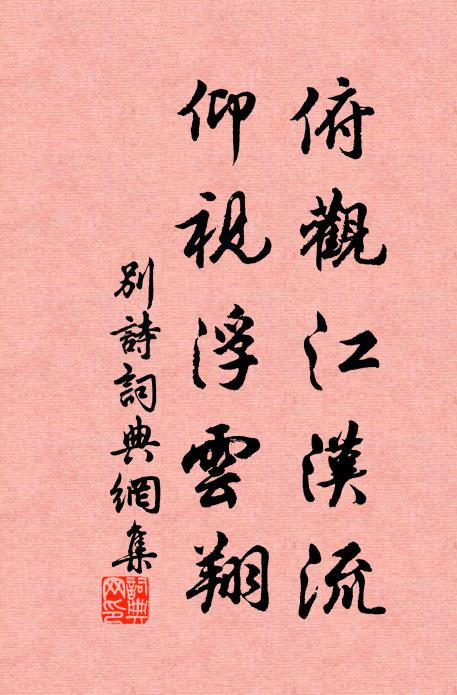 俯觀江漢流
仰視浮雲翔
別詩詞典網集
詞典